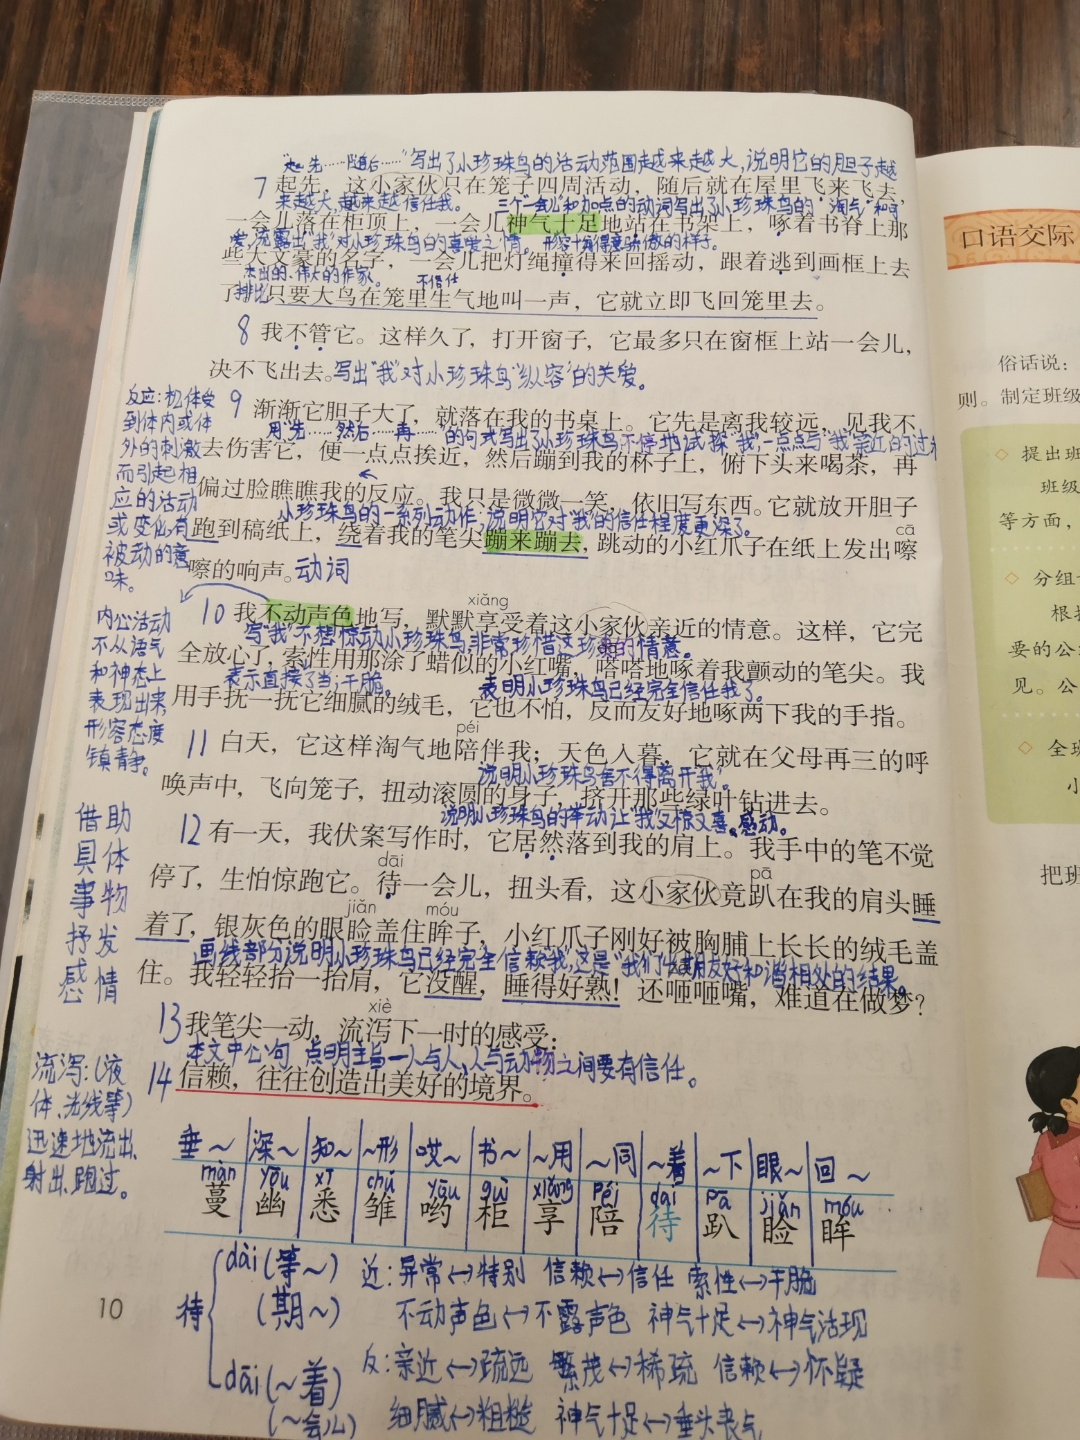 “起先……随后……”写出了小珍珠鸟的活动范围越来越大,说明它的胆子越
7 起先，这小家伙只在笼子四周活动，随后就在屋里飞来飞去，
来越大,越来越信任我。 三个“一会儿”和加点的动词写出了小珍珠鸟的“淘气”和可
一会儿落在柜顶上，一会儿神气十足地站在书架上，啄着书脊上那
爱,流露出“我”对小珍珠鸟的喜爱之情。 形容十分得意骄傲的样子。
些大文豪的名字，一会儿把灯绳撞得来回摇动，跟着逃到画框上去
杰出的、伟大的作家。
了。只要大鸟在笼里生气地叫一声，它就立即飞回笼里去。
8 我不管它。这样久了，打开窗子，它最多只在窗框上站一会儿，
决不飞出去。写出“我”对小珍珠鸟“纵容”的关爱。
9 渐渐它胆子大了，就落在我的书桌上。它先是离我较远，见我不
用“先……然后……再……”的句式写出了小珍珠鸟不停地试探“我”,一点点与“我”亲近的过
去伤害它，便一点点挨近，然后蹦到我的杯子上，俯下头来喝茶，再
偏过脸瞧瞧我的反应。我只是微微一笑，依旧写东西。它就放开胆子
小珍珠鸟的一系列动作,说明它对“我”的信任程度更深了。
跑到稿纸上，绕着我的笔尖蹦来蹦去，跳动的小红爪子在纸上发出嚓
cā
嚓的响声。动词
反应:机体受
到体内或体
外的刺激
而引起相
应的活动
或变化,有
被动的意
味。
xiǎng
10 我不动声色地写，默默享受着这小家伙亲近的情意。这样，它完
写“我”不想惊动小珍珠鸟,非常珍惜这珍贵的情意。
全放心了，索性用那涂了蜡似的小红嘴，嗒嗒地啄着我颤动的笔尖。我
表示直接了当;干脆。 表明小珍珠鸟已经完全信任我了。
用手抚一抚它细腻的绒毛，它也不怕，反而友好地啄两下我的手指。
内心活动
不从语气
和神态上
表现出来,
形容态度
镇静。
péi
11 白天，它这样淘气地陪伴我；天色入暮，它就在父母再三的呼
说明小珍珠鸟舍不得离开“我”。
唤声中，飞向笼子，扭动滚圆的身子，挤开那些绿叶钻进去。
说明小珍珠鸟的举动让“我”又惊又喜、感动。
12 有一天，我伏案写作时，它居然落到我的肩上。我手中的笔不觉
dāi pā
停了，生怕惊跑它。待一会儿，扭头看，这小家伙竟趴在我的肩头睡
jiǎn móu
着了，银灰色的眼睑盖住眸子，小红爪子刚好被胸脯上长长的绒毛盖
画线部分说明小珍珠鸟已经完全信赖“我”,这是“我们”长期友好和谐相处的结果。
住。我轻轻抬一抬肩，它没醒，睡得好熟！还咂咂嘴，难道在做梦？
借助
具体
事物
抒发
感情
xiè
13 我笔尖一动，流泻下一时的感受：
本文中心句,点明主旨—人与人、人与动物之间要有信任。
14 信赖，往往创造出美好的境界。
流泻:(液
体、光线等)
迅速地流出、
射出、跑过。
垂～ 深～ 知～ ～形 哎～ 书～ ～用 ～同 ～着 ～下 眼～ 回～
màn yōu xī chú yōu guì xiǎng péi dāi pā jiǎn móu
蔓 幽 悉 雏 哟 柜 享 陪 待 趴 睑 眸
待
dài(等～)
(期～)
dāi(～着)
(～会儿)
近:异常↔特别 信赖↔信任 索性↔干脆
不动声色↔不露声色 神气十足↔神气活现
反:亲近↔疏远 繁茂↔稀疏 信赖↔怀疑
细腻↔粗糙 神气十足↔垂头丧气
10
口语交际
俗话说：
则。制定班级
◇ 提出班
班级
等方面，
◇ 分组
根
要的公
见。公
◇ 全班
小
把班